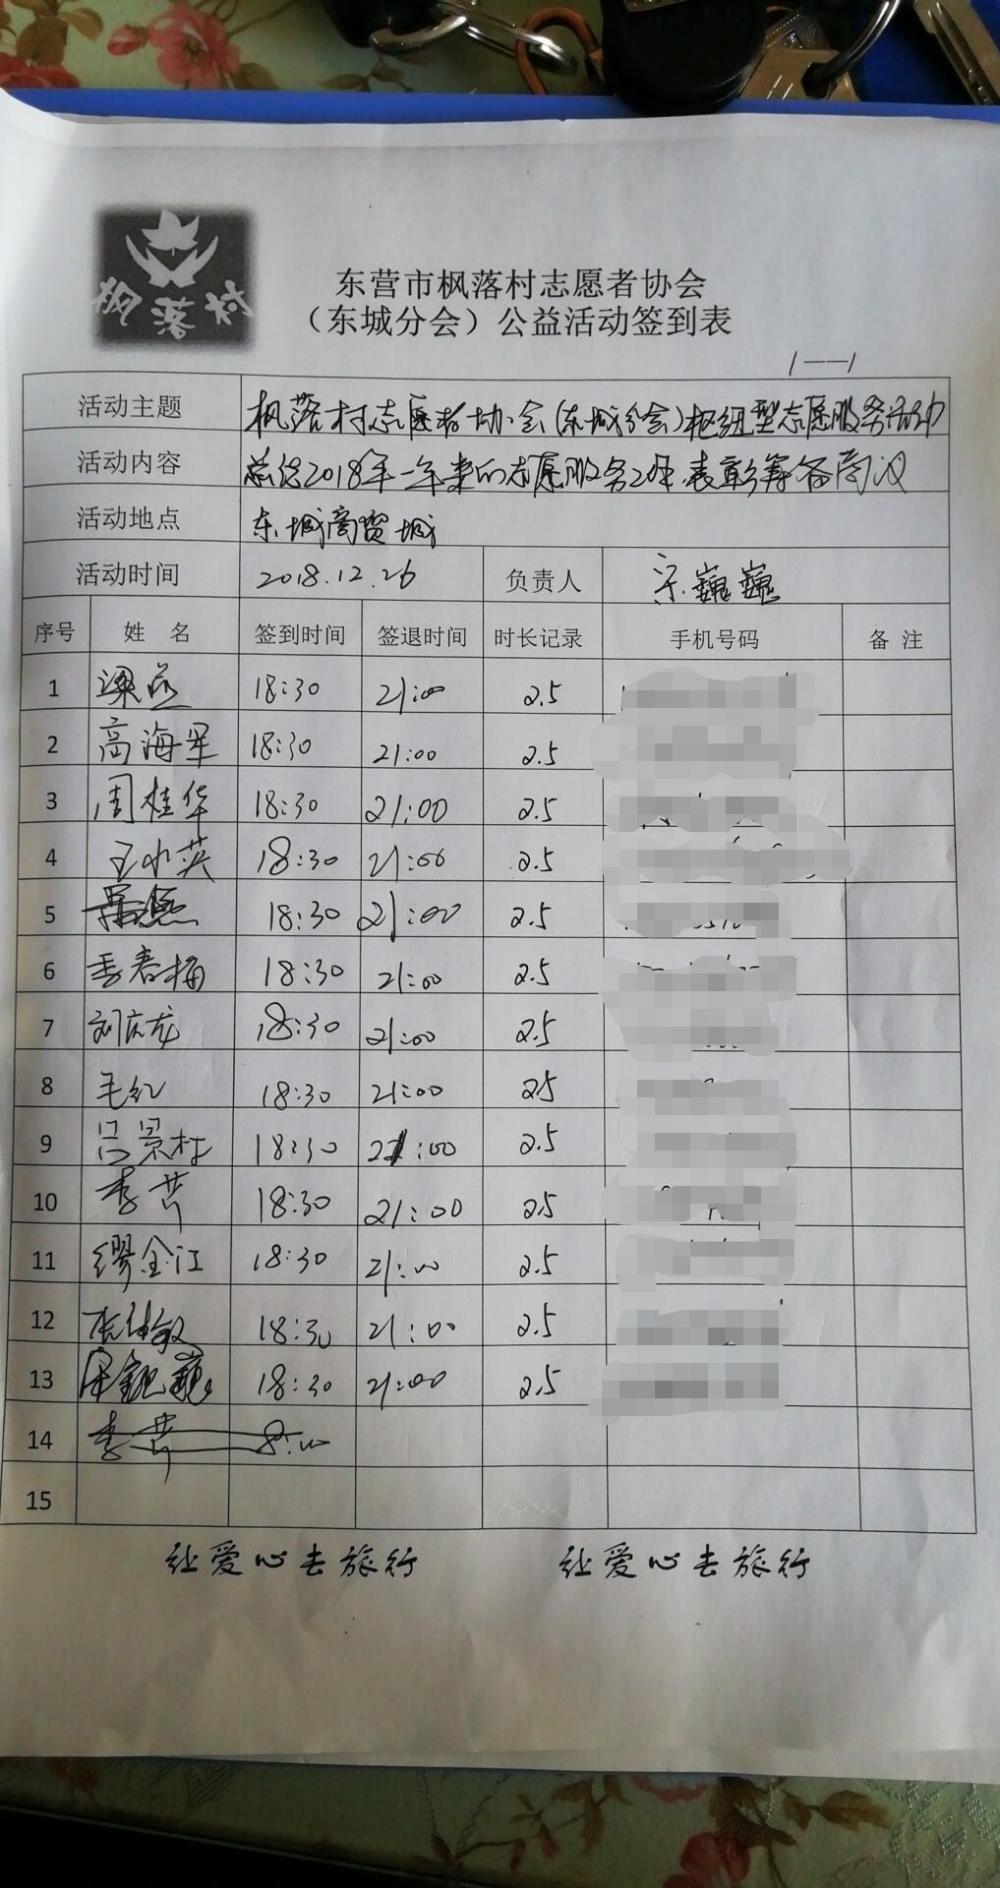 枫落村
东营市枫落村志愿者协会
（东城分会）公益活动签到表
1——1
活动主题 枫落村志愿者协会(东城分会)枢纽型志愿服务活动
活动内容 总结2018年一年来的志愿服务工作.表彰筹备商议
活动地点 东城商贸城
活动时间 2018.12.26 负责人 宋巍巍
序号 姓 名 签到时间 签退时间 时长记录 手机号码 备 注
1 梁燕 18:30 21:00 2.5
2 高海军 18:30 21:00 2.5
3 周桂华 18:30 21:00 2.5
4 王水英 18:30 21:00 2.5
5 18:30 21:00 2.5
6 季春梅 18:30 21:00 2.5
7 刘庆龙 18:30 21:00 2.5
8 毛红 18:30 21:00 2.5
9 吕景村 18:30 21:00 2.5
10 李芹 18:30 21:00 2.5
11 缪金江 18:30 21:00 2.5
12 18:30 21:00 2.5
13 宋巍巍 18:30 21:00 2.5
14 李芹 8:00
15
让爱心去旅行 让爱心去旅行